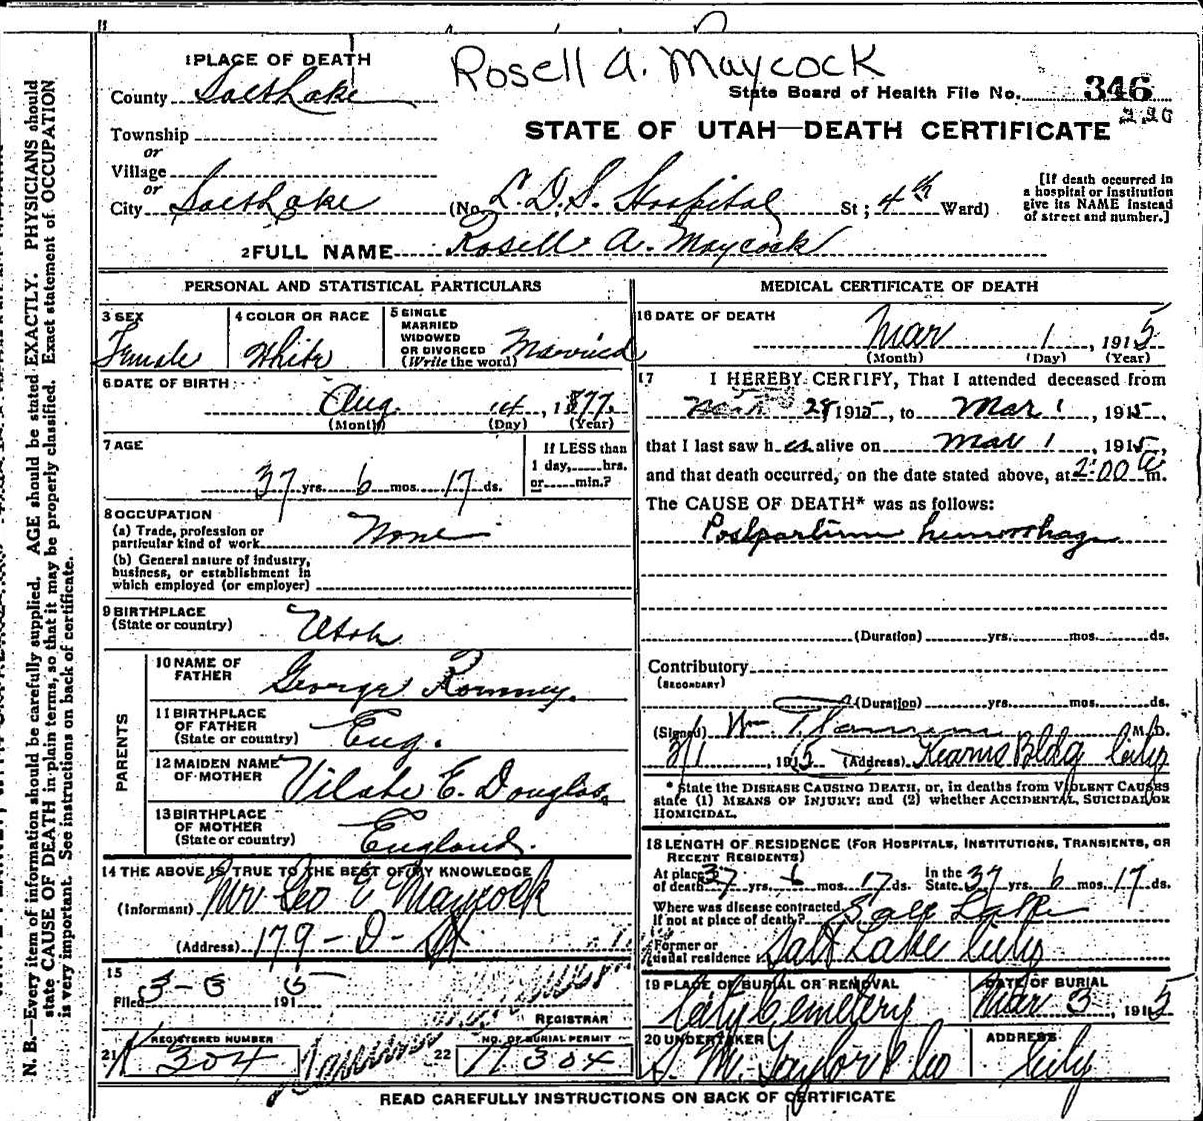 Rosell A. Maycock
1 PLACE OF DEATH
County Salt Lake
State Board of Health File No. 346
Township
or
STATE OF UTAH—DEATH CERTIFICATE
Village
or
City Salt Lake (No. L. D. S. Hospital St; 4th Ward)
[If death occurred in
a hospital or institution
give its NAME instead
of street and number.]
2 FULL NAME Rosell A. Maycock
PERSONAL AND STATISTICAL PARTICULARS
3 SEX
Female
4 COLOR OR RACE
White
5 SINGLE
MARRIED
WIDOWED
OR DIVORCED
(Write the word)
Married
6 DATE OF BIRTH
Aug. 14, 1877.
(Month) (Day) (Year)
7 AGE
37 yrs. 6 mos. 17 ds.
If LESS than
1 day, hrs.
or min.?
8 OCCUPATION
(a) Trade, profession or
particular kind of work None
(b) General nature of industry,
business, or establishment in
which employed (or employer)
9 BIRTHPLACE
(State or country) Utah
PARENTS
10 NAME OF
FATHER
George Romney.
11 BIRTHPLACE
OF FATHER
(State or country) Eng.
12 MAIDEN NAME
OF MOTHER
Vilate E. Douglas
13 BIRTHPLACE
OF MOTHER
(State or country) England.
14 THE ABOVE IS TRUE TO THE BEST OF MY KNOWLEDGE
(Informant) Mr Geo E Maycock
(Address) 179 - D - St
15
Filed 3-3 1915
REGISTRAR
REGISTERED NUMBER
21 304
NO. OF BURIAL PERMIT
22 304
MEDICAL CERTIFICATE OF DEATH
16 DATE OF DEATH
Mar 1, 1915
(Month) (Day) (Year)
17 I HEREBY CERTIFY, That I attended deceased from
28 1915, to Mar 1, 1915,
that I last saw her alive on Mar 1, 1915,
and that death occurred, on the date stated above, at 2:00 a m.
The CAUSE OF DEATH* was as follows:
Postpartum hemorrhage
(Duration) yrs. mos. ds.
Contributory
(SECONDARY)
(Duration) yrs. mos. ds.
(Signed) Wm M. D.
3/1, 1915 (Address) Kearns Bldg City
* State the DISEASE CAUSING DEATH, or, in deaths from VIOLENT CAUSES
state (1) MEANS OF INJURY; and (2) whether ACCIDENTAL, SUICIDAL OR
HOMICIDAL.
18 LENGTH OF RESIDENCE (FOR HOSPITALS, INSTITUTIONS, TRANSIENTS, OR
RECENT RESIDENTS)
At place In the
of death 37 yrs. 6 mos. 17 ds. State 37 yrs. 6 mos. 17 ds.
Where was disease contracted,
If not at place of death? Salt Lake
Former or
usual residence Salt Lake City
19 PLACE OF BURIAL OR REMOVAL
City Cemetery
DATE OF BURIAL
Mar 3, 1915
20 UNDERTAKER
S. M. Taylor & Co
ADDRESS
City
READ CAREFULLY INSTRUCTIONS ON BACK OF CERTIFICATE
N. B.—Every item of information should be carefully supplied. AGE should be stated EXACTLY. PHYSICIANS should
state CAUSE OF DEATH in plain terms, so that it may be properly classified. Exact statement of OCCUPATION
is very important. See instructions on back of certificate.